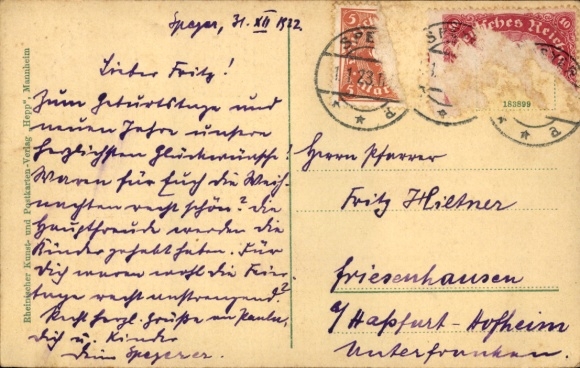 Speyer, 31. XII 1922
Lieber Fritz!
Zum Geburtstage und
neuen Jahre unsere
herzlichsten Glückwünsche!
Waren für Euch die Weih-
nachten recht schön? Die
Hauptfreude werden die
Kinder gehabt haben. Für
Dich waren wohl die Feier-
tage recht anstrengend?
Recht herzl. Grüße an Paula,
Dich u. Kinder
Dein Speyerer.
Herrn Pfarrer
Fritz Hiltner
Friesenhausen
a/Haßfurt-Hofheim
Unterfranken.
Rheinischer Kunst- und Postkarten-Verlag „Hepp", Mannheim
5
5 Mark
SPE
1.1.23.1
SPE
Deutsches Reich
10
183899